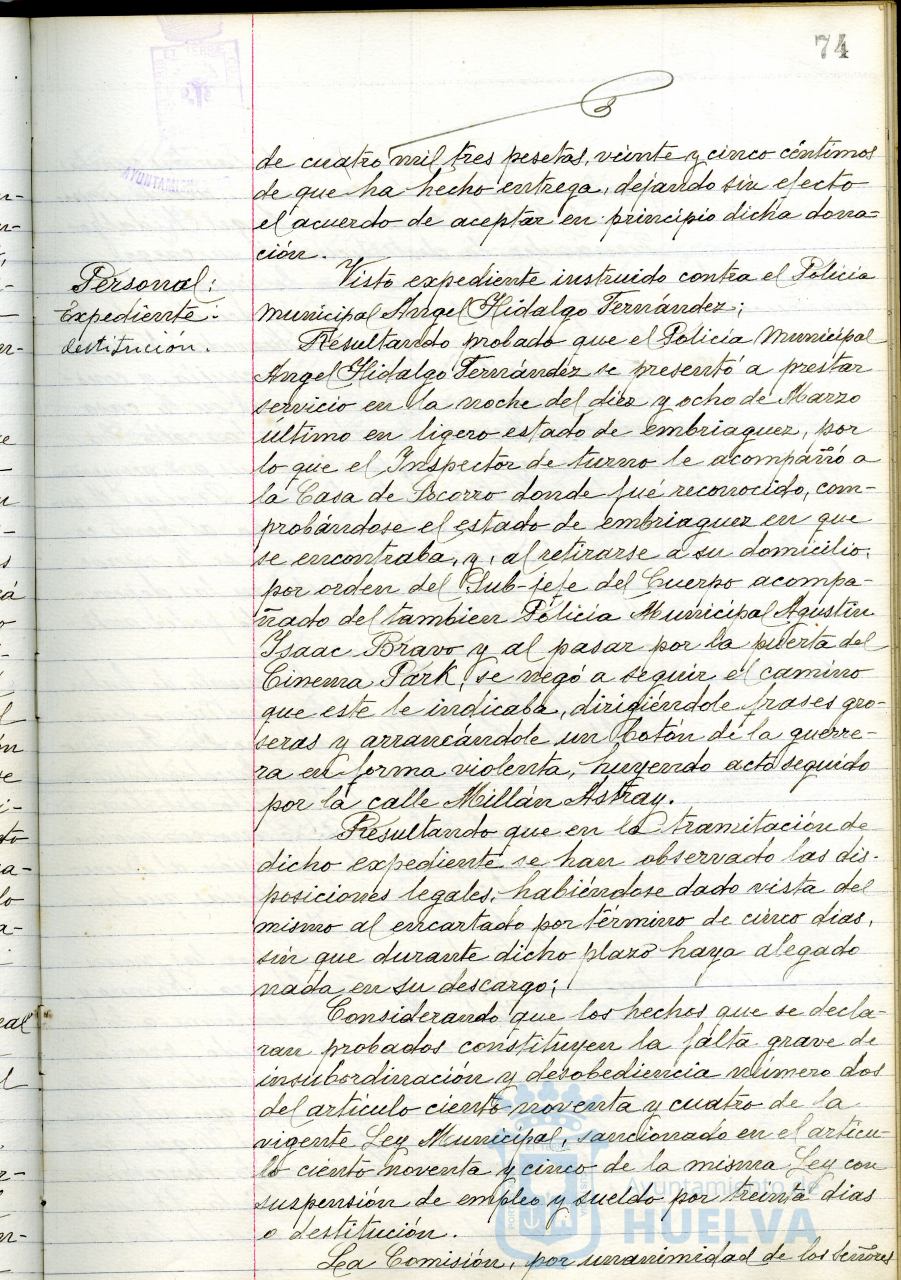 74
de cuatro mil tres pesetas, veinte y cinco céntimos
de que ha hecho entrega, dejando sin efecto
el acuerdo de aceptar en principio dicha dona=
ción.
Personal:
Expediente:
destitución.
Visto expediente instruido contra el Policia
Municipal Angel Hidalgo Fernández;
Resultando probado que el Policia Municipal
Angel Hidalgo Fernández se presentó a prestar
servicio en la noche del diez y ocho de Marzo
último en ligero estado de embriaguez, por
lo que el Inspector de turno le acompañó a
la Casa de Socorro donde fué reconocido, com-
probándose el estado de embriaguez en que
se encontraba, y, al retirarse a su domicilio,
por orden del Sub-jefe del Cuerpo acompa-
ñado del tambien Policia Municipal Agustin
Isaac Bravo y al pasar por la puerta del
Cinema Park, se negó a seguir el camino
que este le indicaba, dirigiéndole frases gro-
seras y arrancándole un botón de la guerre-
ra en forma violenta, huyendo acto seguido
por la calle Millán Astray.
Resultando que en la tramitación de
dicho expediente se han observado las dis-
posiciones legales, habiéndose dado vista del
mismo al encartado por término de cinco dias,
sin que durante dicho plazo haya alegado
nada en su descargo;
Considerando que los hechos que se decla-
ran probados constituyen la falta grave de
insubordinación y desobediencia número dos
del artículo ciento noventa y cuatro de la
vigente Ley Municipal, sancionado en el artícu-
lo ciento noventa y cinco de la misma Ley con
suspensión de empleo y sueldo por treinta dias
o destitución.
La Comisión, por unanimidad de los señores
Ayuntamiento de
HUELVA